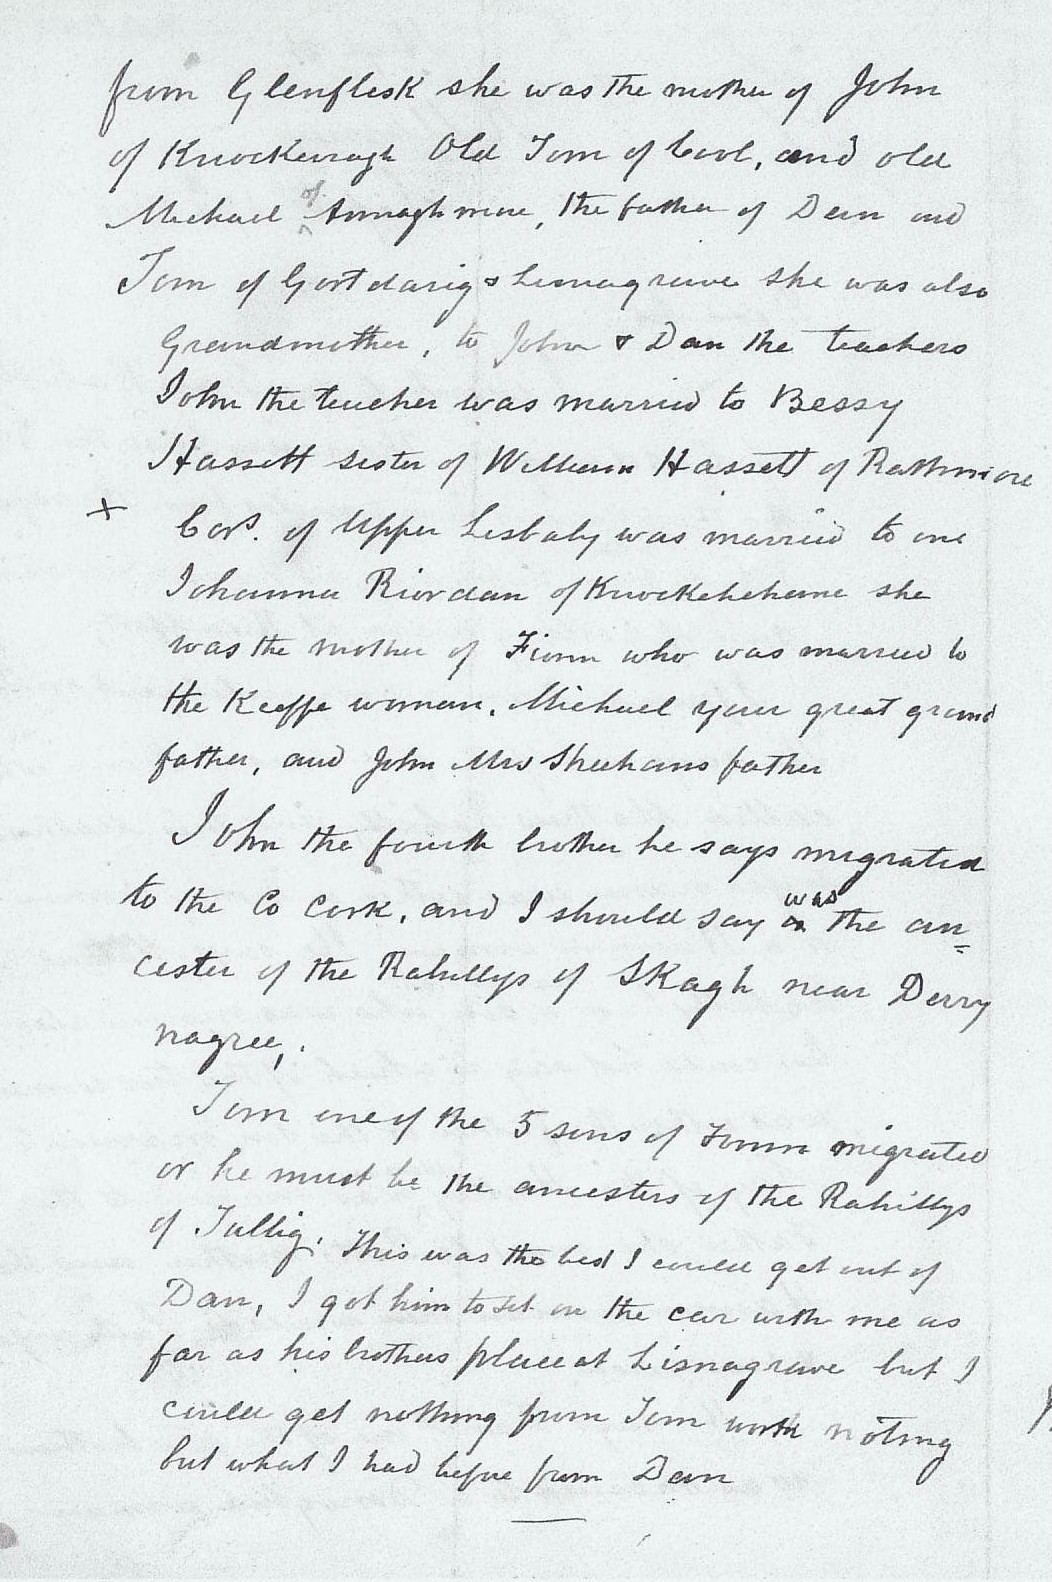 from Glenflesk she was the mother of John
of Knockeuragh Old Tom of Cool, and old
Michael of Annaghmore, the father of Dan and
Tom of Gortdarig & Lisnagrave she was also
Grandmother, to John & Dan the teachers
John the teacher was married to Bessy
Hassett sister of William Hassett of Rathmore
x Cors. of Upper Lisbaby was married to one
Johanna Riordan of she
was the mother of Fionn who was married to
the Keeffe woman, Michael your great grand
father, and John Mrs Sheehans father
John the fourth brother he says migrated
to the Co Cork, and I should say was the an=
cester of the Rahillys of SKagh near Derry
nagree,.
Tom one of the 5 sons of Fionn migrated
or he must be the ancesters of the Rahillys
of Tullig. This was the best I could get out of
Dan, I got him to sit on the car with me as
far as his brothers place at Lisnagrave but I
could get nothing from Tom worth noting
but what I had before from Dan